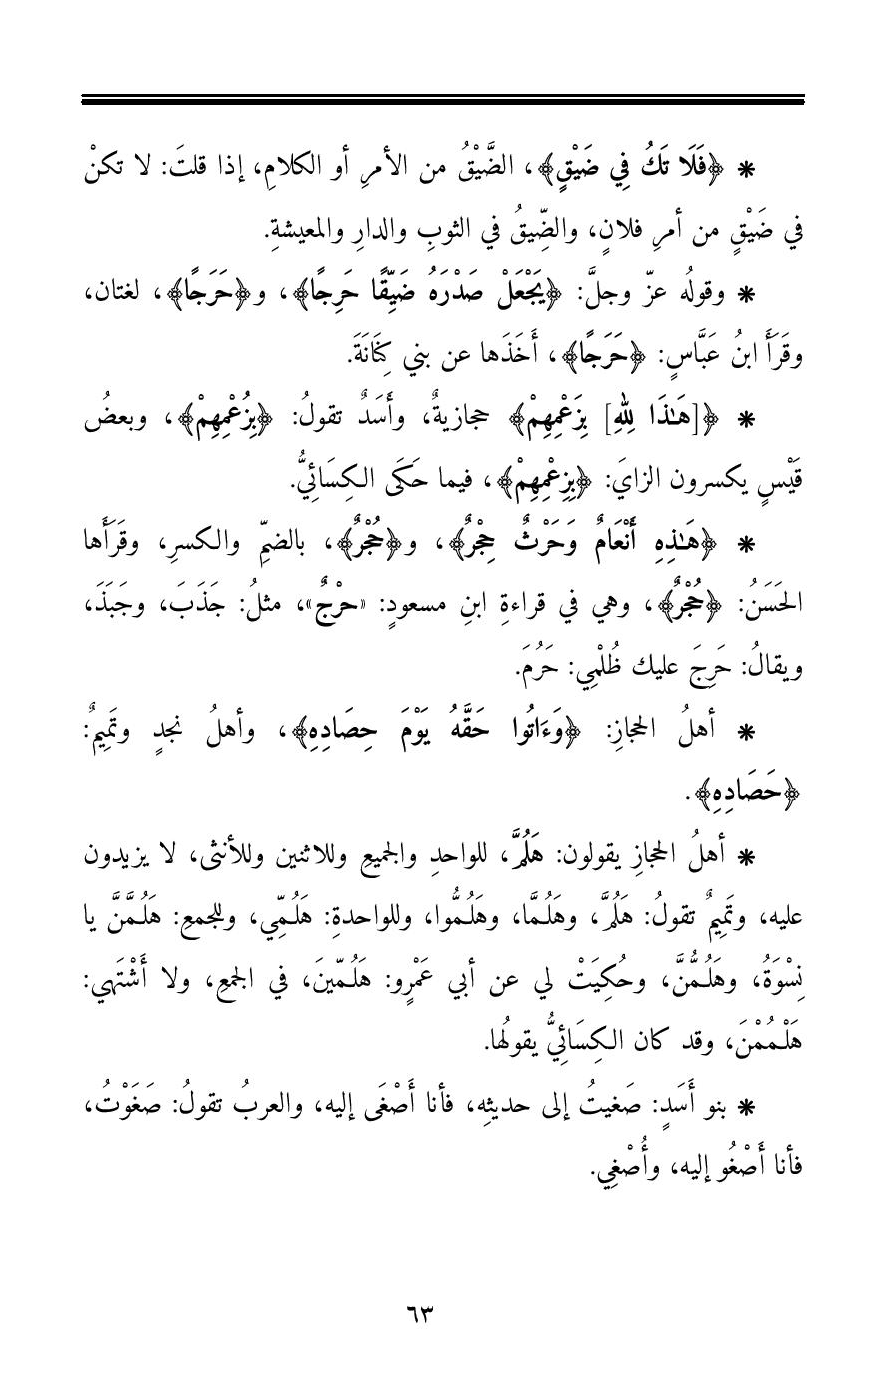 * ﴿فَلَا تَكُ فِي ضَيْقٍ﴾، الضَّيْقُ من الأمرِ أو الكلامِ، إذا قلتَ: لا تكنْ
في ضَيْقٍ من أمرِ فلانٍ، والضِّيقُ في الثوبِ والدارِ والمعيشةِ.
* وقولُه عزّ وجلَّ: ﴿يَجْعَلْ صَدْرَهُ ضَيِّقًا حَرِجًا﴾، و﴿حَرَجًا﴾، لغتان،
وقَرَأَ ابنُ عَبَّاسٍ: ﴿حَرَجًا﴾، أَخَذَها عن بني كِنَانَةَ.
* ﴿[هَٰذَا لِلهِ] بِزَعْمِهِمْ﴾ حجازيةٌ، وأَسَدٌ تقولُ: ﴿بِزُعْمِهِمْ﴾، وبعضُ
قَيْسٍ يكسرون الزايَ: ﴿بِزِعْمِهِمْ﴾، فيما حَكَى الكِسَائِيُّ.
* ﴿هَٰذِهِ أَنْعَامٌ وَحَرْثٌ حِجْرٌ﴾، و﴿حُجْرٌ﴾، بالضمِّ والكسرِ، وقَرَأَها
الحَسَنُ: ﴿حُجْرٌ﴾، وهي في قراءةِ ابنِ مسعودٍ: «حرْجٌ»، مثلُ: جَذَبَ، وجَبَذَ،
ويقالُ: حَرِجَ عليك ظُلْمِي: حَرُمَ.
* أهلُ الحجازِ: ﴿وَءَاتُوا حَقَّهُ يَوْمَ حِصَادِهِ﴾، وأهلُ نجدٍ وتَمِيمٌ:
﴿حَصَادِهِ﴾.
* أهلُ الحجازِ يقولون: هَلُمَّ، للواحدِ والجميعِ وللاثنين وللأنثى، لا يزيدون
عليه، وتَمِيمٌ تقولُ: هَلُمَّ، وهَلُمَّا، وهَلُمُّوا، وللواحدةِ: هَلُمِّي، وللجمعِ: هَلُمَّنَّ يا
نِسْوَةُ، وهَلُمُّنَّ، وحُكِيَتْ لي عن أبي عَمْرٍو: هَلُمِّينَ، في الجمعِ، ولا أَشْتَهي:
هَلْمُمْنَ، وقد كان الكِسَائِيُّ يقولُها.
* بنو أَسَدٍ: صَغيتُ إلى حديثِه، فأنا أَصْغَى إليه، والعربُ تقولُ: صَغَوْتُ،
فأنا أَصْغُو إليه، وأُصْغِي.
٦٣